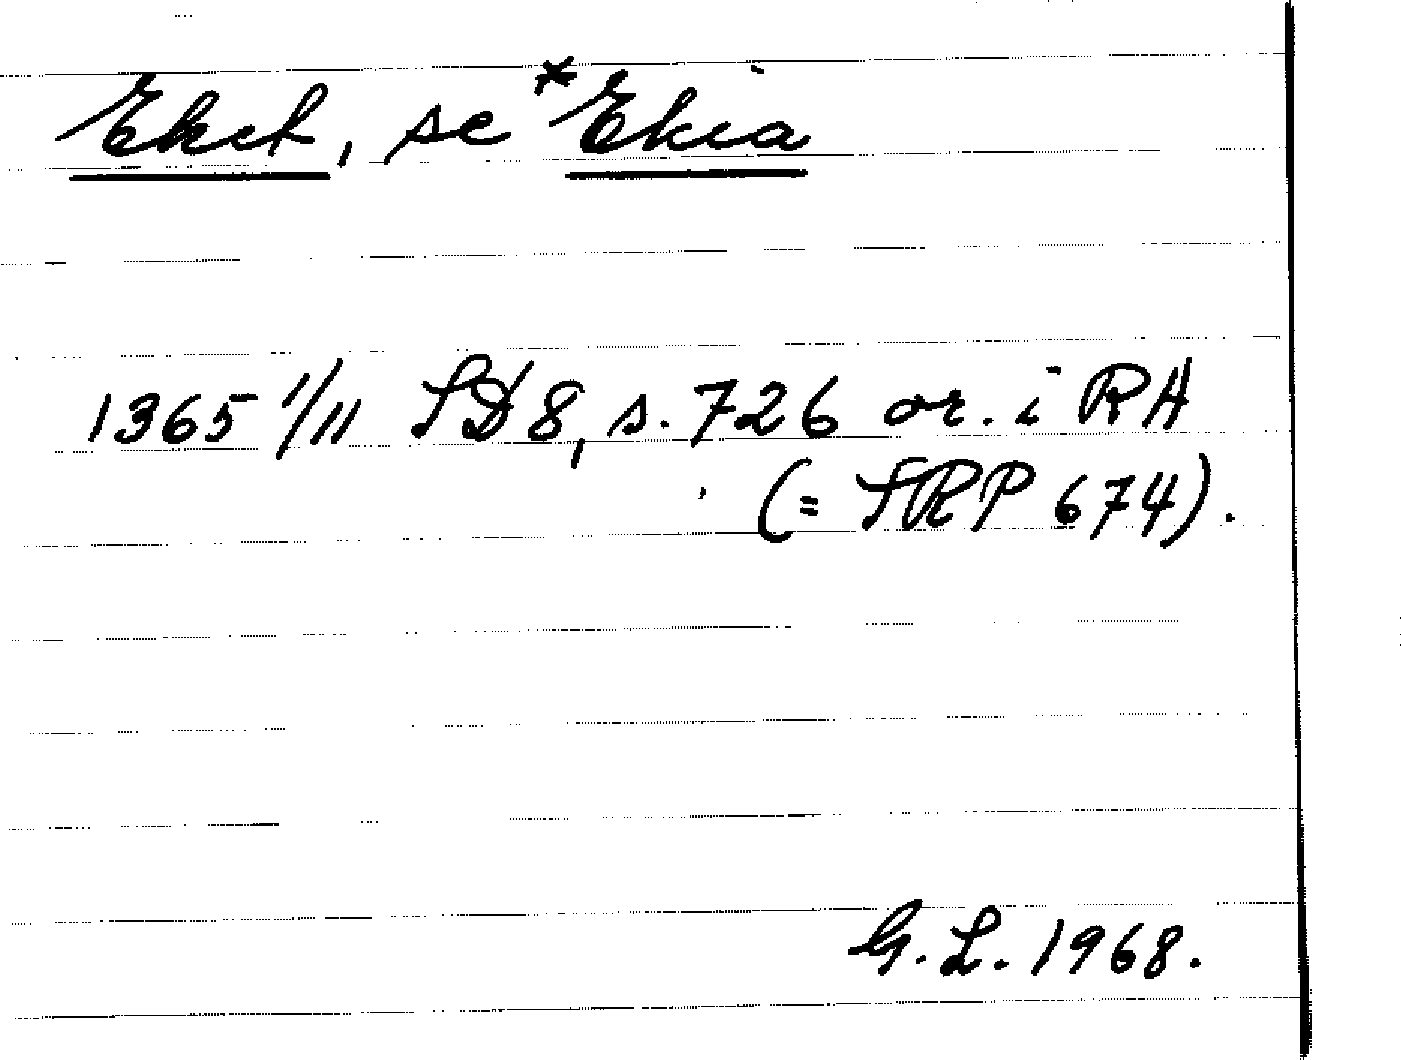 Eket, se *Ekia
1365 1/11 SD 8, s. 726 or. i RA
(= SRP 674).
G. L. 1968.